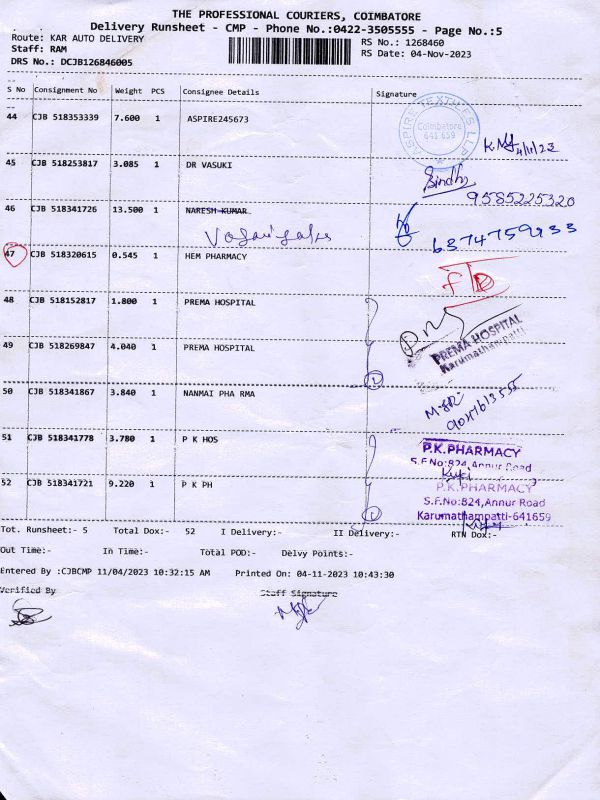 THE PROFESSIONAL COURIERS, COIMBATORE
Delivery Runsheet - CMP - Phone No.:0422-3505555 - Page No.:5
Route: KAR AUTO DELIVERY
RS No.: 1268460
Staff: RAM
RS Date: 04-Nov-2023
DRS No.: DCJB126846005
S No Consignment No Weight PCS Consignee Details Signature
44 CJB 518353339 7.600 1 ASPIRE245673
Coimbatore
641 659
4/11/23
45 CJB 518253817 3.085 1 DR VASUKI
Sindhu
9585225320
46 CJB 518341726 13.500 1 NARESH KUMAR
6374759933
47 CJB 518320615 0.545 1 HEM PHARMACY
48 CJB 518152817 1.800 1 PREMA HOSPITAL
PREMA HOSPITAL
Karumathampatti
49 CJB 518269847 4.040 1 PREMA HOSPITAL
50 CJB 518341867 3.840 1 NANMAI PHA RMA
51 CJB 518341778 3.780 1 P K HOS
P.K.PHARMACY
S.F.No:824,Annur Road
52 CJB 518341721 9.220 1 P K PH
P.K.PHARMACY
S.F.No:824,Annur Road
Karumathampatti-641659
Tot. Runsheet:- 5 Total Dox:- 52 I Delivery:- II Delivery:- RTN Dox:-
Out Time:- In Time:- Total POD:- Delvy Points:-
Entered By :CJBCMP 11/04/2023 10:32:15 AM Printed On: 04-11-2023 10:43:30
Verified By Staff Signature